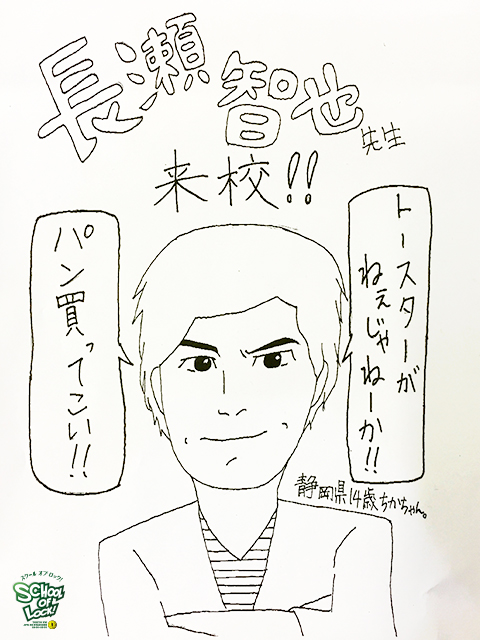 長瀬智也先生
来校!!
トースターが
ねぇじゃねーか!!
パン買ってこい!!
静岡県14歳ちかちゃん。
スクール オブ ロック!
SCHOOL
OF
LOCK!